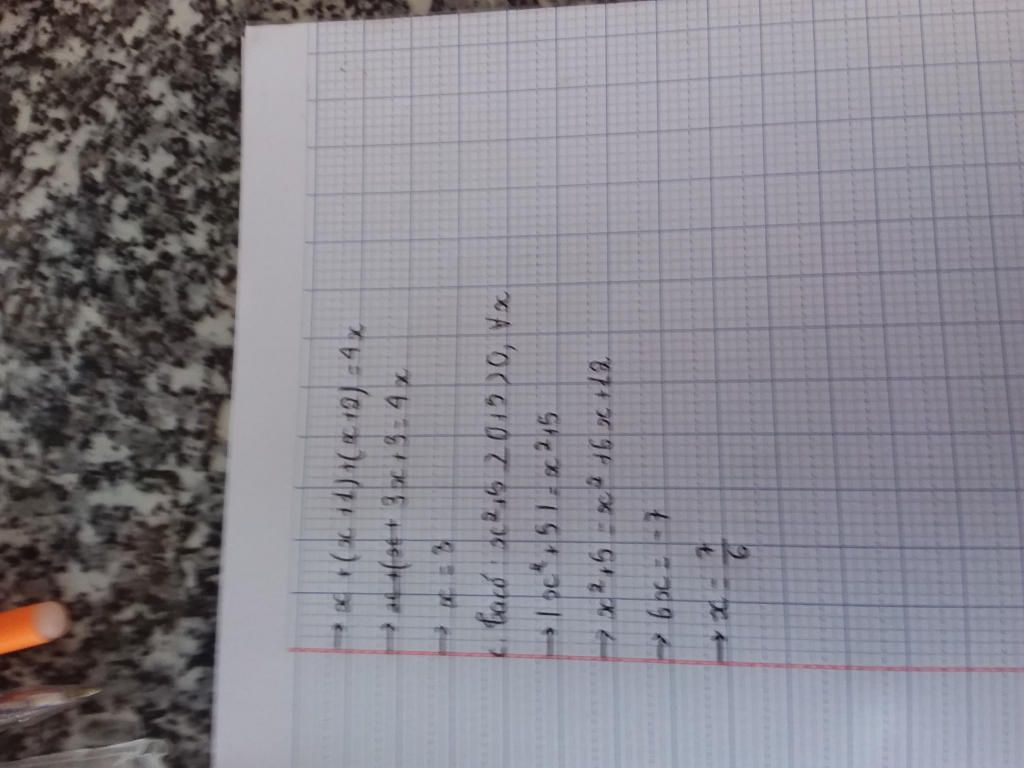 → x + (x + 1) + (x + 2) = 4x
→ 3x + 3 = 4x
→ x = 3
c. Ta có : x² + 5 ≥ 0 + 5 > 0, ∀x
→ |x² + 5| = x² + 5
→ x² + 5 = x² + 6x + 12
→ 6x = -7
→ x = 7/6